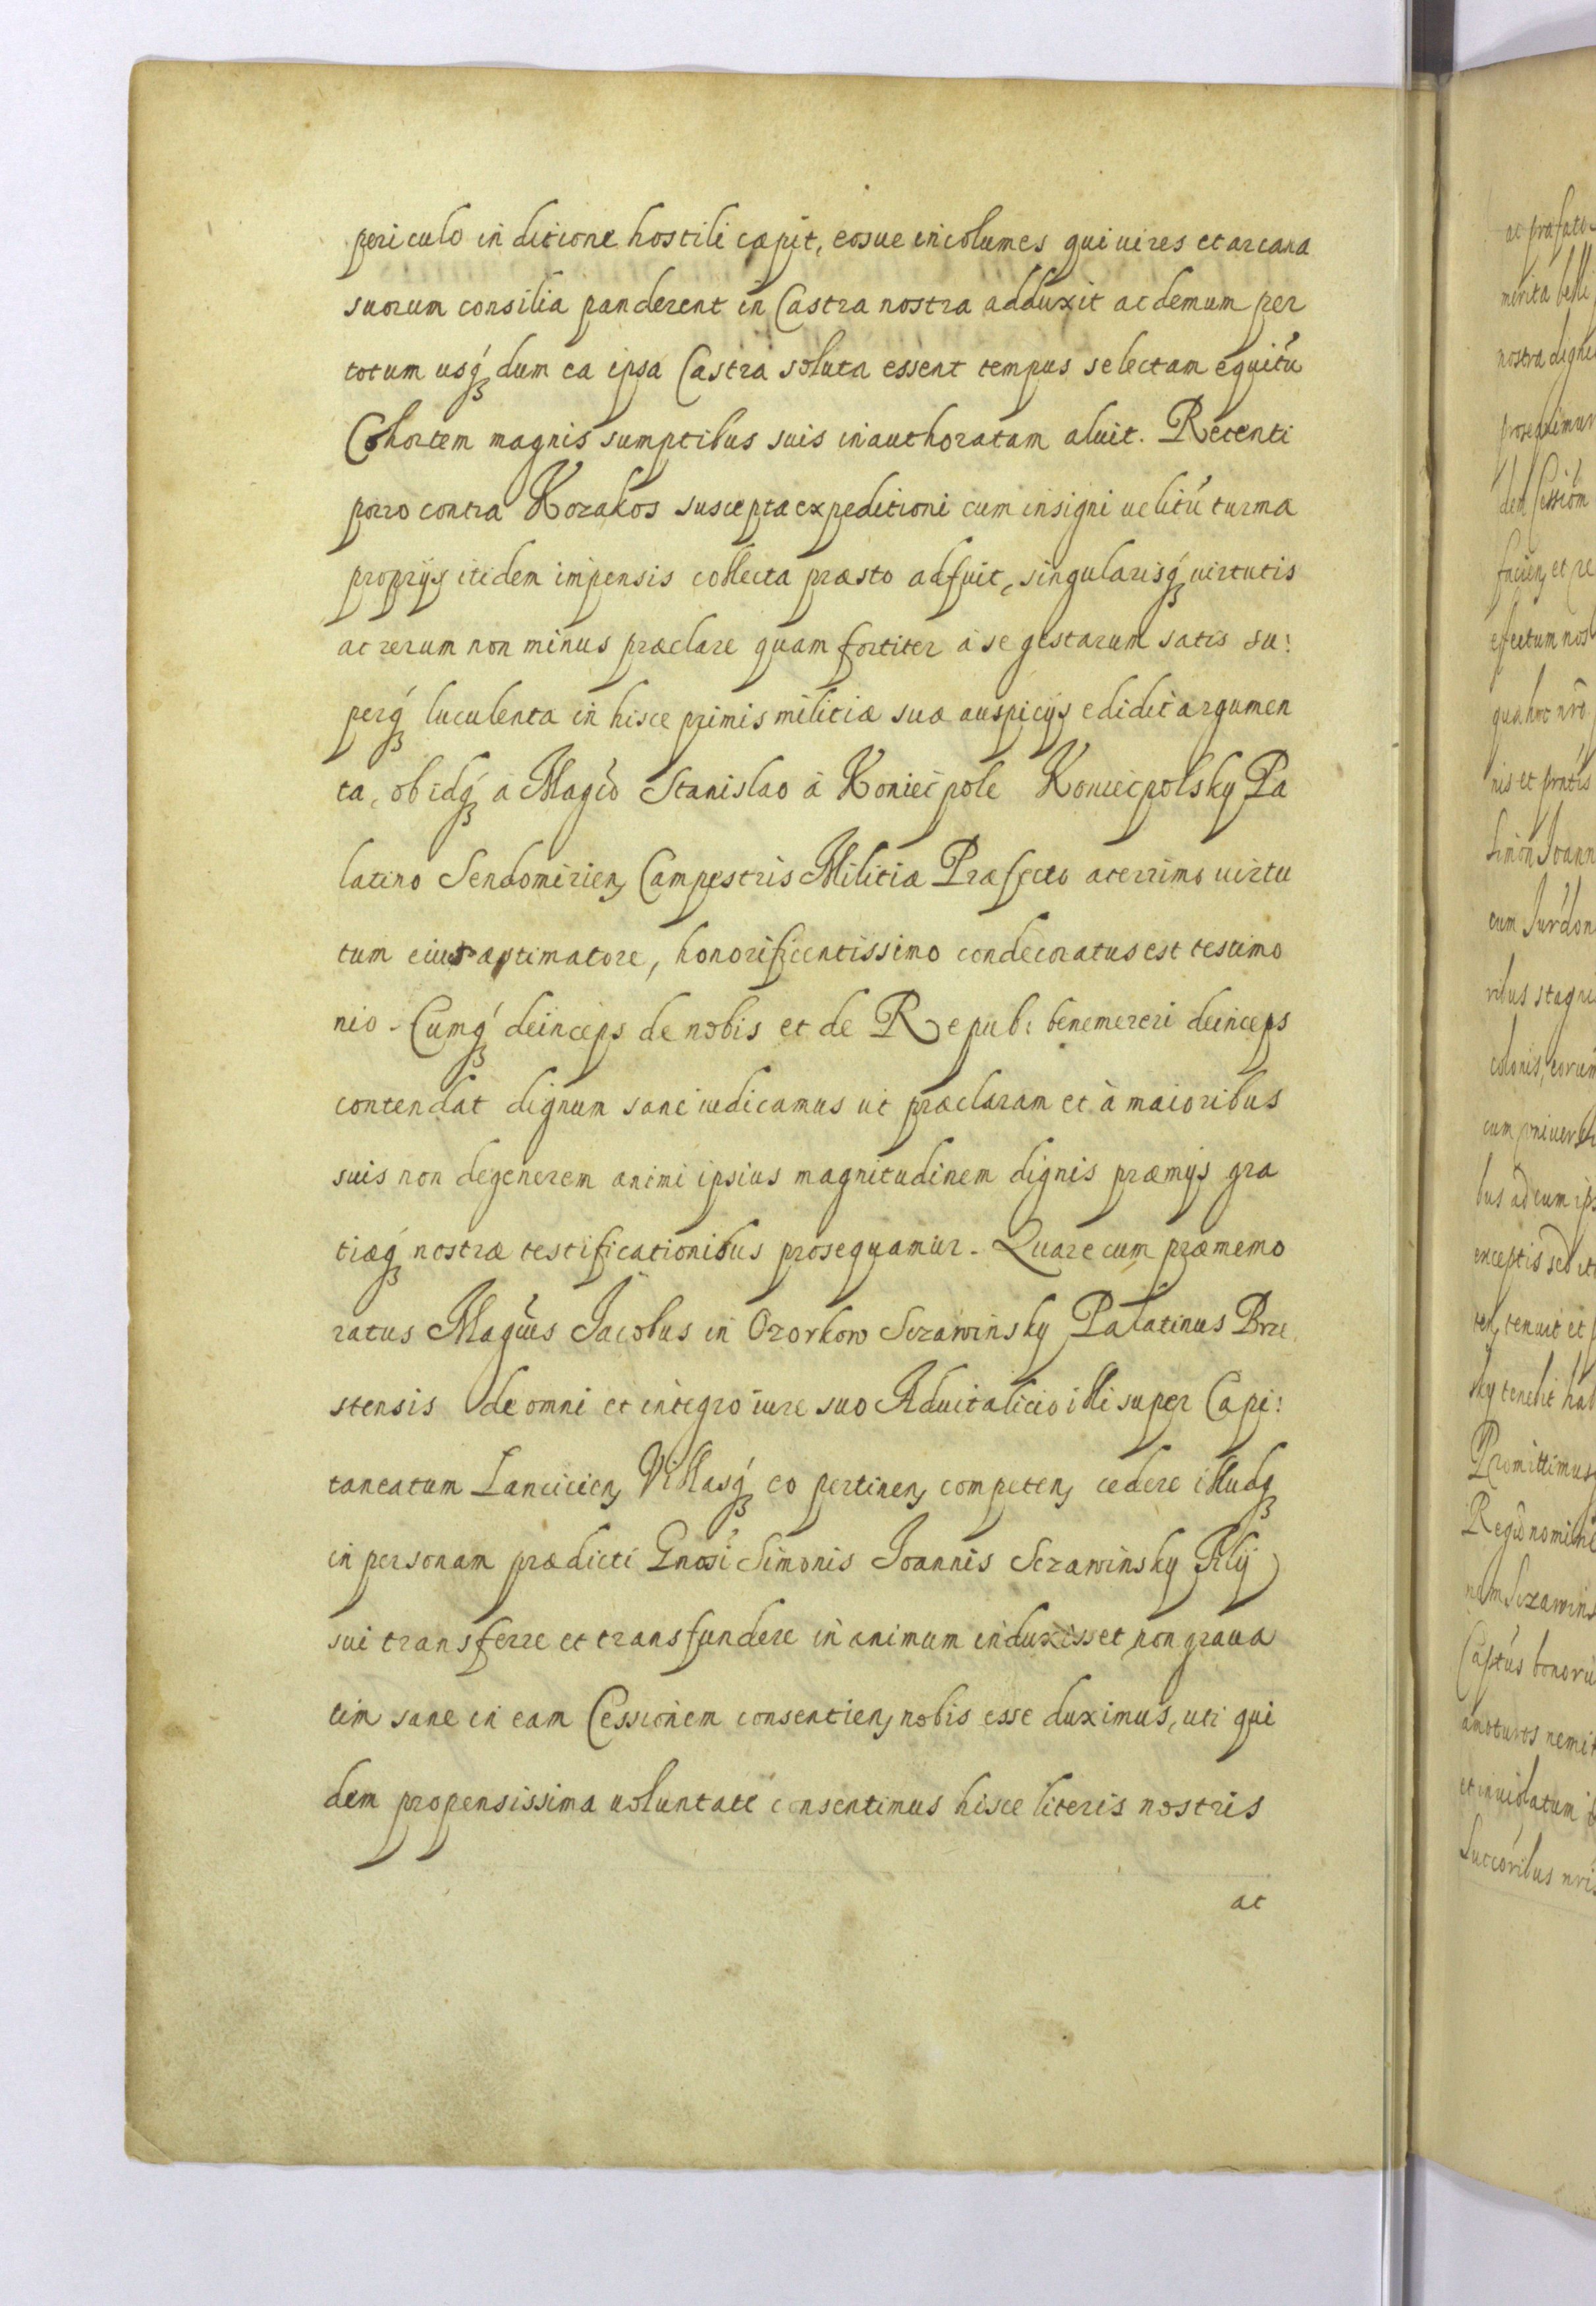 periculo in ditione hostili cæpit, eosue incolumes qui uires et arcana
suorum consilia panderent in Castra nostra adduxit ac demum per
totum usq́ꝫ dum ea ipsa Castra soluta essent tempus selectam equitū
Cohortem magnis sumptibus suis inauthoratam aluit. Recenti
porro contra Kozakos susceptæ expeditioni cum insigni uelitū turma
proprijs itidem impensis collecta præsto adfuit, singularisq́ꝫ uirtutis
ac rerum non minus præclare quam fortiter à se gestarum satis su:
perq́ꝫ luculenta in hisce primis militiæ suæ auspicijs edidit argumen
ta, ob idq́ꝫ à Magco Stanislao à Koniecpole Koniecpolsky Pa
latino Sendomirien, Campestris Militiæ Præfecto acerrimo uirtu
tum eius æstimatore, honorificentissimo condecoratus est testimo
nio. Cumq́ꝫ deinceps de nobis et de Repub: benemereri deinceps
contendat dignum sane iudicamus ut præclaram et à maioribus
suis non degenerem animi ipsius magnitudinem dignis præmijs gra
tiæq́ꝫ nostræ testificationibus prosequamur. Quare cum præmemo
ratus Magcus Jacobus in Ozorkow Sczawinsky Palatinus Brze
stensis de omni et integro iure suo Aduitalicio illi super Capi:
taneatum Lancicien, Villasq́ꝫ eo pertinen, competen, cedere illudqꝫ
in personam prædicti Gnosi Simonis Joannis Sczawinsky Filij
sui transferre et transfundere in animum induxisset, non graua
tim sane in eam Cessionem consentien, nobis esse duximus, uti qui
dem propensissima uoluntate consentimus hisce literis nostris
ac
ac præfato
merita belli
prosequimur
colonis, eorum
exceptis sed et
Promittimus